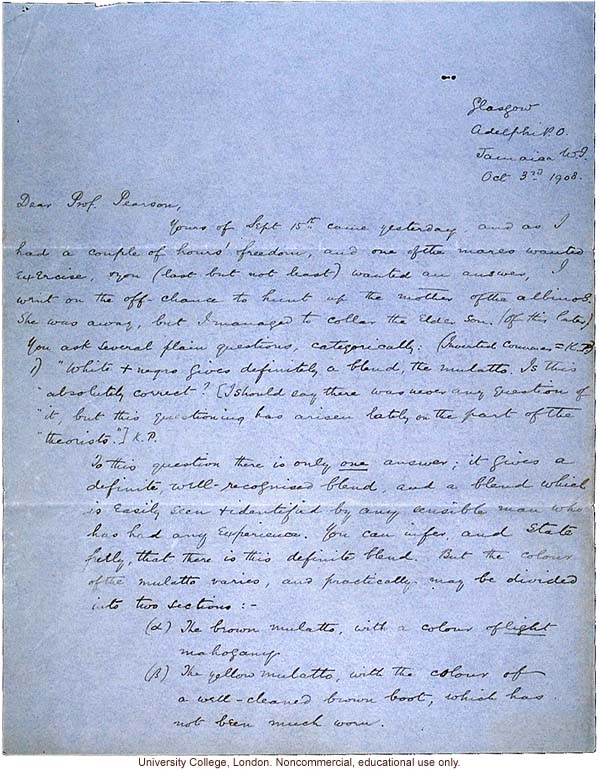 Glasgow
Adelphi P.O.
Jamaica W.I.
Oct 3rd 1908.
Dear Prof. Pearson,
Yours of Sept 15th came yesterday, and as I
had a couple of hours' freedom, and one of the mares wanted
exercise, & you (last but not least) wanted an answer, I
went on the off-chance to hunt up the mother of the albinos.
She was away, but I managed to collar the Elder Son. (Of this later)
You ask several plain questions, categorically: (Inverted Commas = K.P.)
1) "White + negro gives definitely a blend, the mulatto. Is this
"absolutely correct? [I should say there was never any question of
"it, but this questioning has arisen lately on the part of the
"theorists."] K.P.
To this question there is only one answer; it gives a
definite, well-recognised blend, and a blend which
is easily seen & identified by any sensible man who
has had any experience. You can infer, and State
fully, that there is this definite blend. But the colour
of the mulatto varies, and practically may be divided
into two sections:-
(α) The brown mulatto, with a colour of light
mahogany
(β) The yellow mulatto, with the colour of
a well-cleaned brown boot, which has
not been much worn.
University College, London. Noncommercial, educational use only.